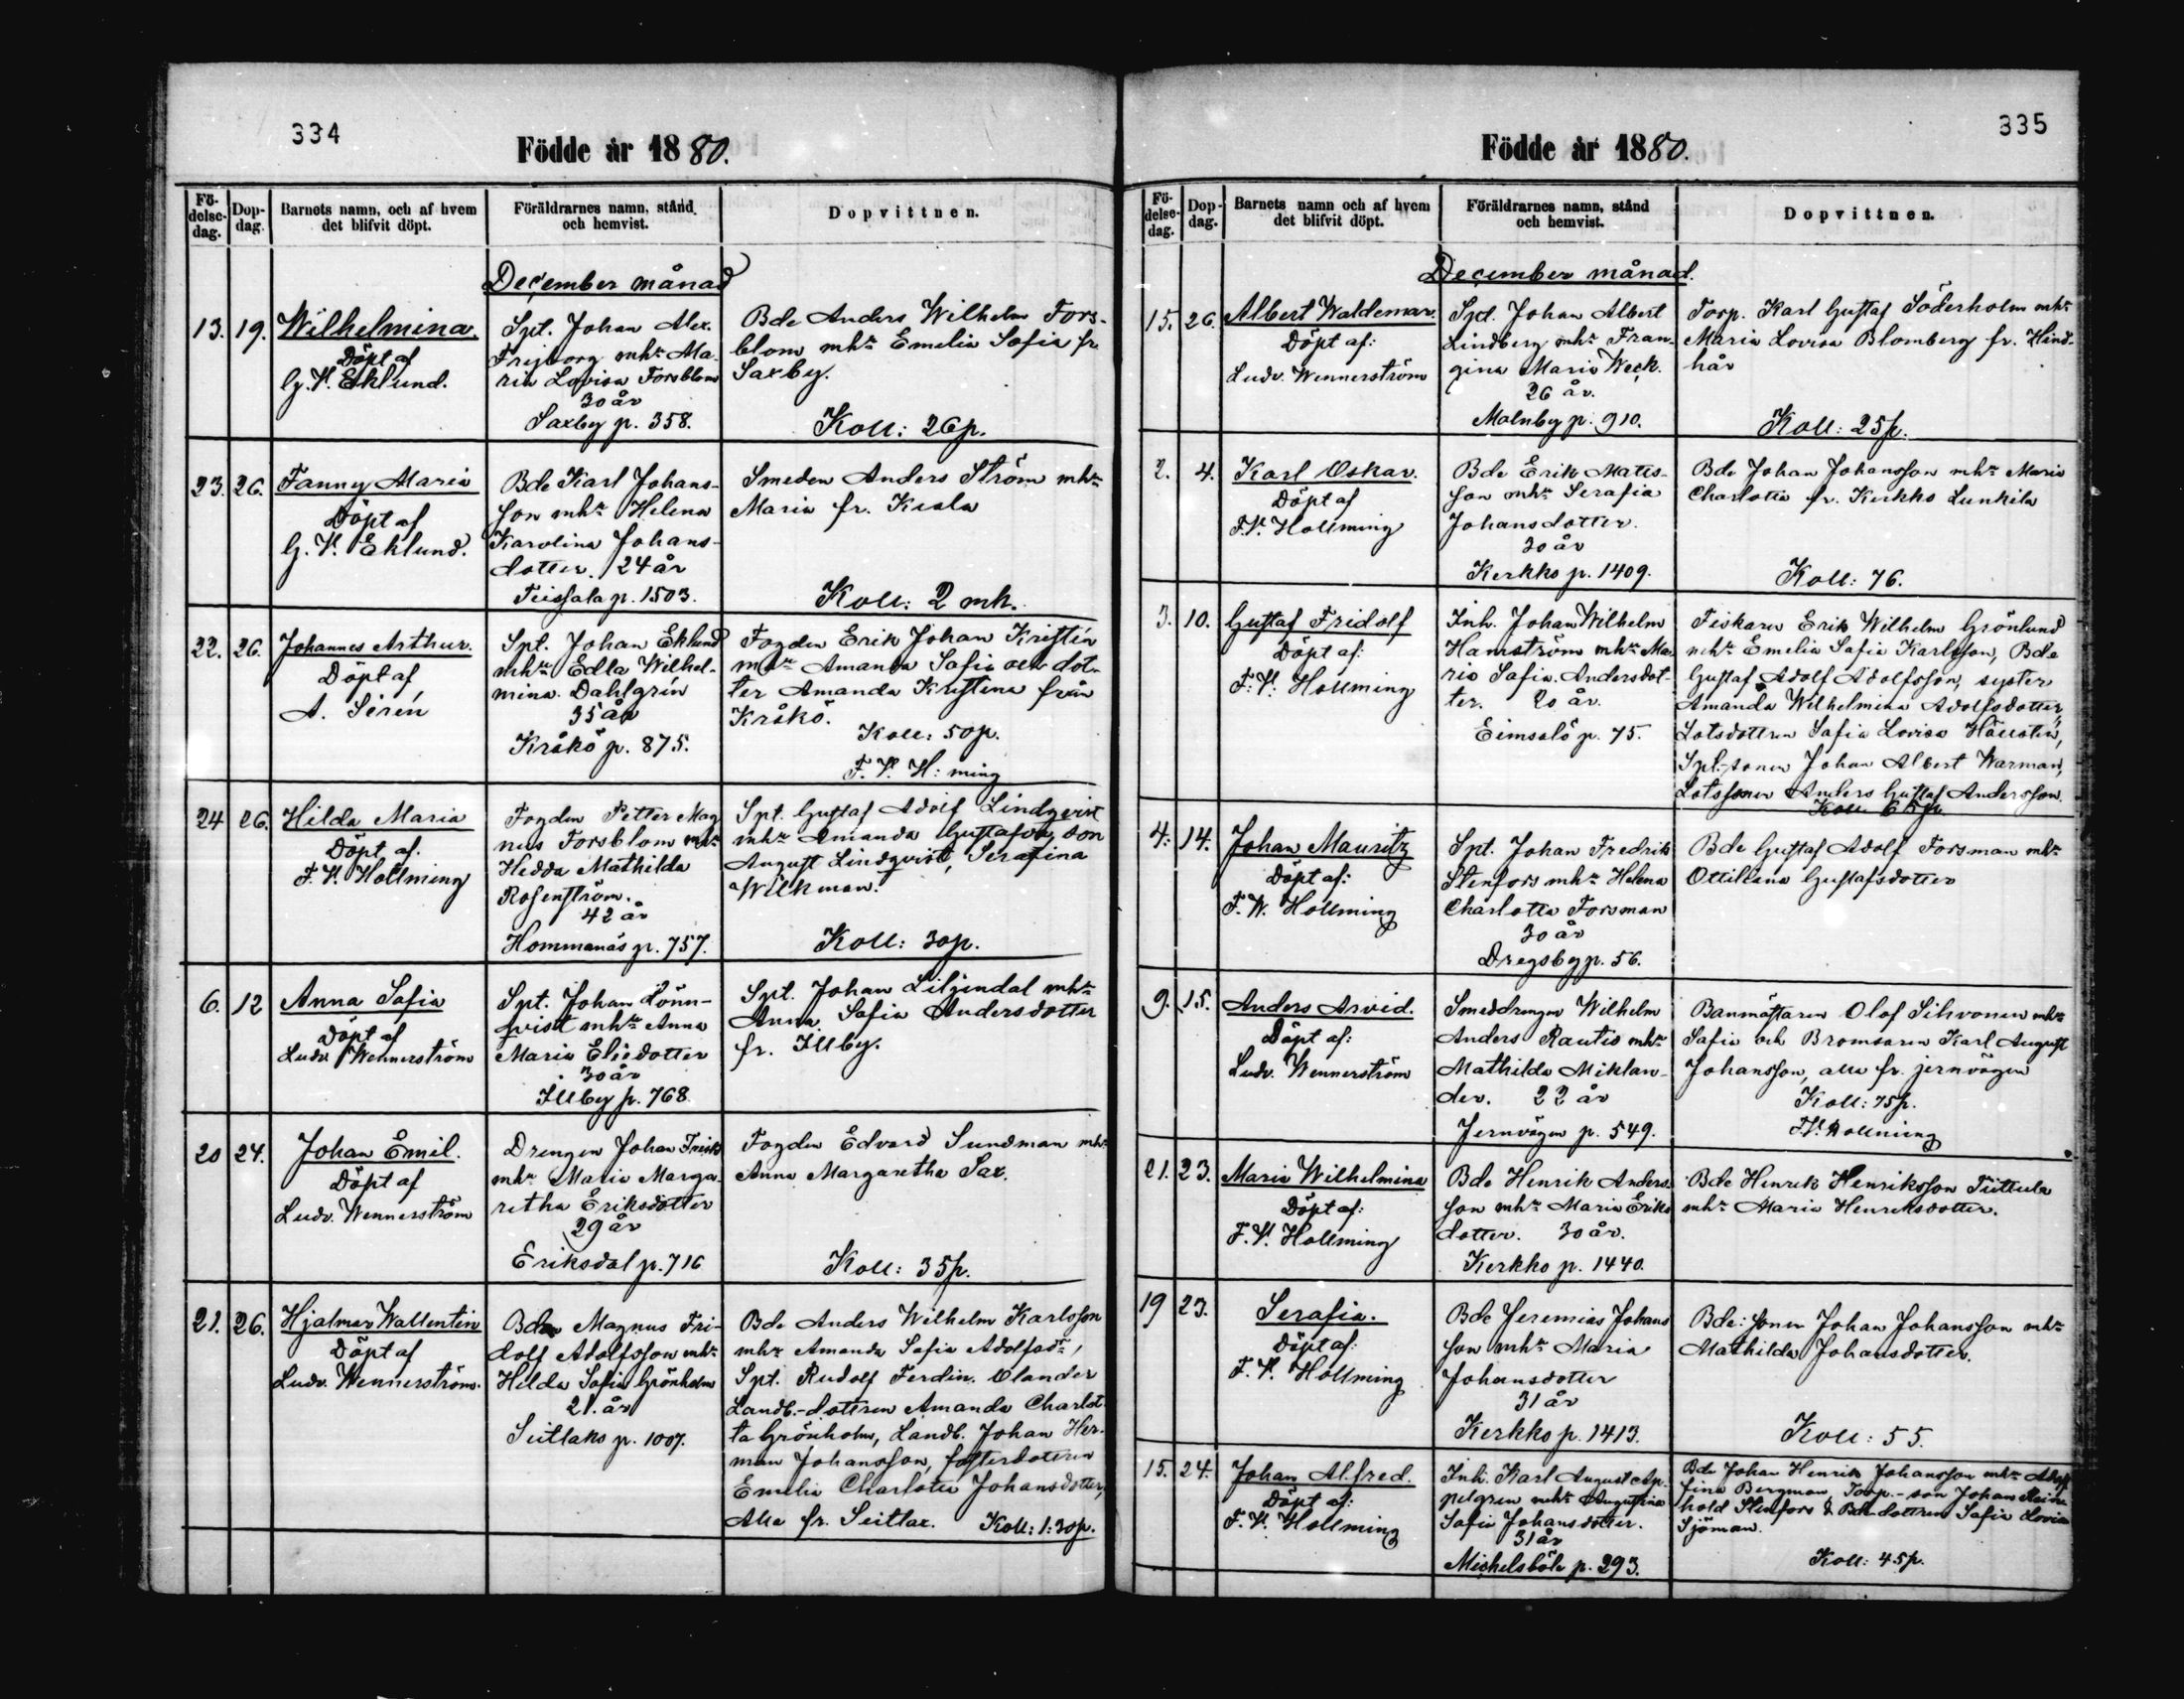 334
Födde år 1880.
Födelsedag.
Dopdag.
Barnets namn, och af hvem det blifvit döpt.
Föräldrarnes namn, stånd och hemvist.
Dopvittnen.
December månad
13. 19.
Wilhelmina.
Döpt af
G. V. Eklund.
Spt. Johan Alex.
Frejborg mhr Ma-
ria Lovisa Forsblom
30 år
Saxby p. 358.
Bde Anders Wilhelm Fors-
blom mhr Emelia Sofia fr.
Saxby.
Koll: 26p.
23. 26.
Fanny Maria
Döpt af
G. V. Eklund.
Bde Karl Johans-
son mhr Helena
Karolina Johans-
dotter. 24 år
Teissala p. 1503.
Smeden Anders Ström mhr
Maria fr. Kiala
Koll: 2 mk.
22. 26.
Johannes Arthur.
Döpt af
A. Sirén
Spt. Johan Eklund
mhr Edla Wilhel-
mina Dahlgrén
35 år
Kråkö p. 875.
Fogden Erik Johan Kristin
mhr Amanda Sofia och dot-
ter Amanda Kristina från
Kråkö.
Koll: 50p.
F. V. H:ming
24 26.
Hilda Maria
Döpt af.
F. V. Hollming
Fogden Petter Mag
nus Forsblom mhr
Hedda Mathilda
Rosenström.
42 år
Hommanäs p. 757.
Spt. Gustaf Adolf Lindqvist
mhr Amanda Gustafva, son
August Lindqvist, Serafina
Wilkman.
Koll: 30p.
6. 12
Anna Sofia
Döpt af
Ludv. Wennerström
Spt. Johan Lönn-
qvist mhr Anna
Maria Eliedotter
30 år
Illby p. 768.
Spt. Johan Liljendal mhr
Anna Sofia Andersdotter
fr. Illby.
20 24.
Johan Emil.
Döpt af
Ludv. Wennerström
Drengen Johan Frisk
mhr Maria Marga-
retha Eriksdotter
29 år
Eriksdal p. 716
Fogden Edvard Sundman mhr
Anna Margaretha Sax.
Koll: 35p.
21. 26.
Hjalmar Wallentin
Döpt af
Ludv. Wennerström.
Bde Magnus Fri-
dolf Adolfsson mhr
Hilda Sofia Grönholm
21 år
Seitlaks p. 1007.
Bde Anders Wilhelm Karlsson
mhr Amanda Sofia Adolfsdtr,
Spt. Rudolf Ferdin. Olander
Landb.-dottren Amanda Charlot-
ta Grönholm, Landb. Johan Her-
man Johansson, fosterdottren
Emelia Charlotta Johansdotter,
Alla fr. Seitlax. Koll: 1:30p.
335
Födde år 1880.
Födelsedag.
Dopdag.
Barnets namn och af hvem det blifvit döpt.
Föräldrarnes namn, stånd och hemvist.
Dopvittnen.
December månad.
15. 26.
Albert Waldemar.
Döpt af:
Ludv. Wennerström
Spt. Johan Albert
Lindberg mhr Fran-
gina Maria Weck.
26 år.
Malmby p. 910.
Torp. Karl Gustaf Söderholm mhr
Maria Lovisa Blomberg fr. Hind-
hår
Koll: 25p.
2. 4.
Karl Oskar.
Döpt af
F. V. Hollming
Bde Erik Matts-
son mhr Serafia
Johansdotter.
30 år
Kerkko p. 1409.
Bde Johan Johansson mhr Maria
Charlotta fr. Kerkko Lunkila
Koll: 76.
3. 10.
Gustaf Fridolf
Döpt af:
F. V. Hollming
Inh. Johan Wilhelm
Hamström mhr Ma-
ria Sofia Andersdot-
ter. 20 år.
Eimsalö p. 75.
Fiskaren Erik Wilhelm Grönlund
mhr Emelia Sofia Karlsson, Bde
Gustaf Adolf Adolfsson, syster
Amanda Wilhelmina Adolfsdotter,
Lotsdottren Sofia Lovisa Hällstén,
Spt.-sonen Johan Albert Warman,
Lotssonen Anders Gustaf Andersson.
Koll 65p.
4. 14.
Johan Mauritz
Döpt af:
F. W. Hollming
Spt. Johan Fredrik
Stenfors mhr Helena
Charlotta Forsman
30 år
Dregsby p. 56.
Bde Gustaf Adolf Forsman mhr
Ottiliana Gustafsdotter
9. 15.
Anders Arvid.
Döpt af:
Ludv. Wennerström
Smeddrengen Wilhelm
Anders Rautio mhr
Mathilda Miklan-
der. 22 år
Jernvägen p. 549.
Banmästaren Olof Sihvonen mhr
Sofia och Bromsaren Karl August
Johansson, alla fr. jernvägen
Koll: 75p.
F.V. Hollming
21. 23.
Maria Wilhelmina
Döpt af:
F. V. Hollming
Bde Henrik Anders-
son mhr Maria Eriks
dotter. 30 år.
Kerkko p. 1440.
Bde Henrik Henriksson Tüttula
mhr Maria Henriksdotter.
19 23.
Serafia.
Döpt af:
F. V. Hollming
Bde Jeremias Johans
son mhr Maria
Johansdotter
31 år
Kerkko p. 1413.
Bde: sonen Johan Johansson mhr
Mathilda Johansdotter.
Koll: 55.
15. 24.
Johan Alfred.
Döpt af:
F. V. Hollming
Inh. Karl August Ap-
pelgren mhr Augustina
Sofia Johansdotter.
31 år
Michelsböle p. 293.
Bde Johan Henrik Johansson mhr Adolf
fina Bergman, Torp.-son Johan Rein
hold Stenfors & Bde dottren Sofia Lovisa
Sjöman.
Koll: 45p.